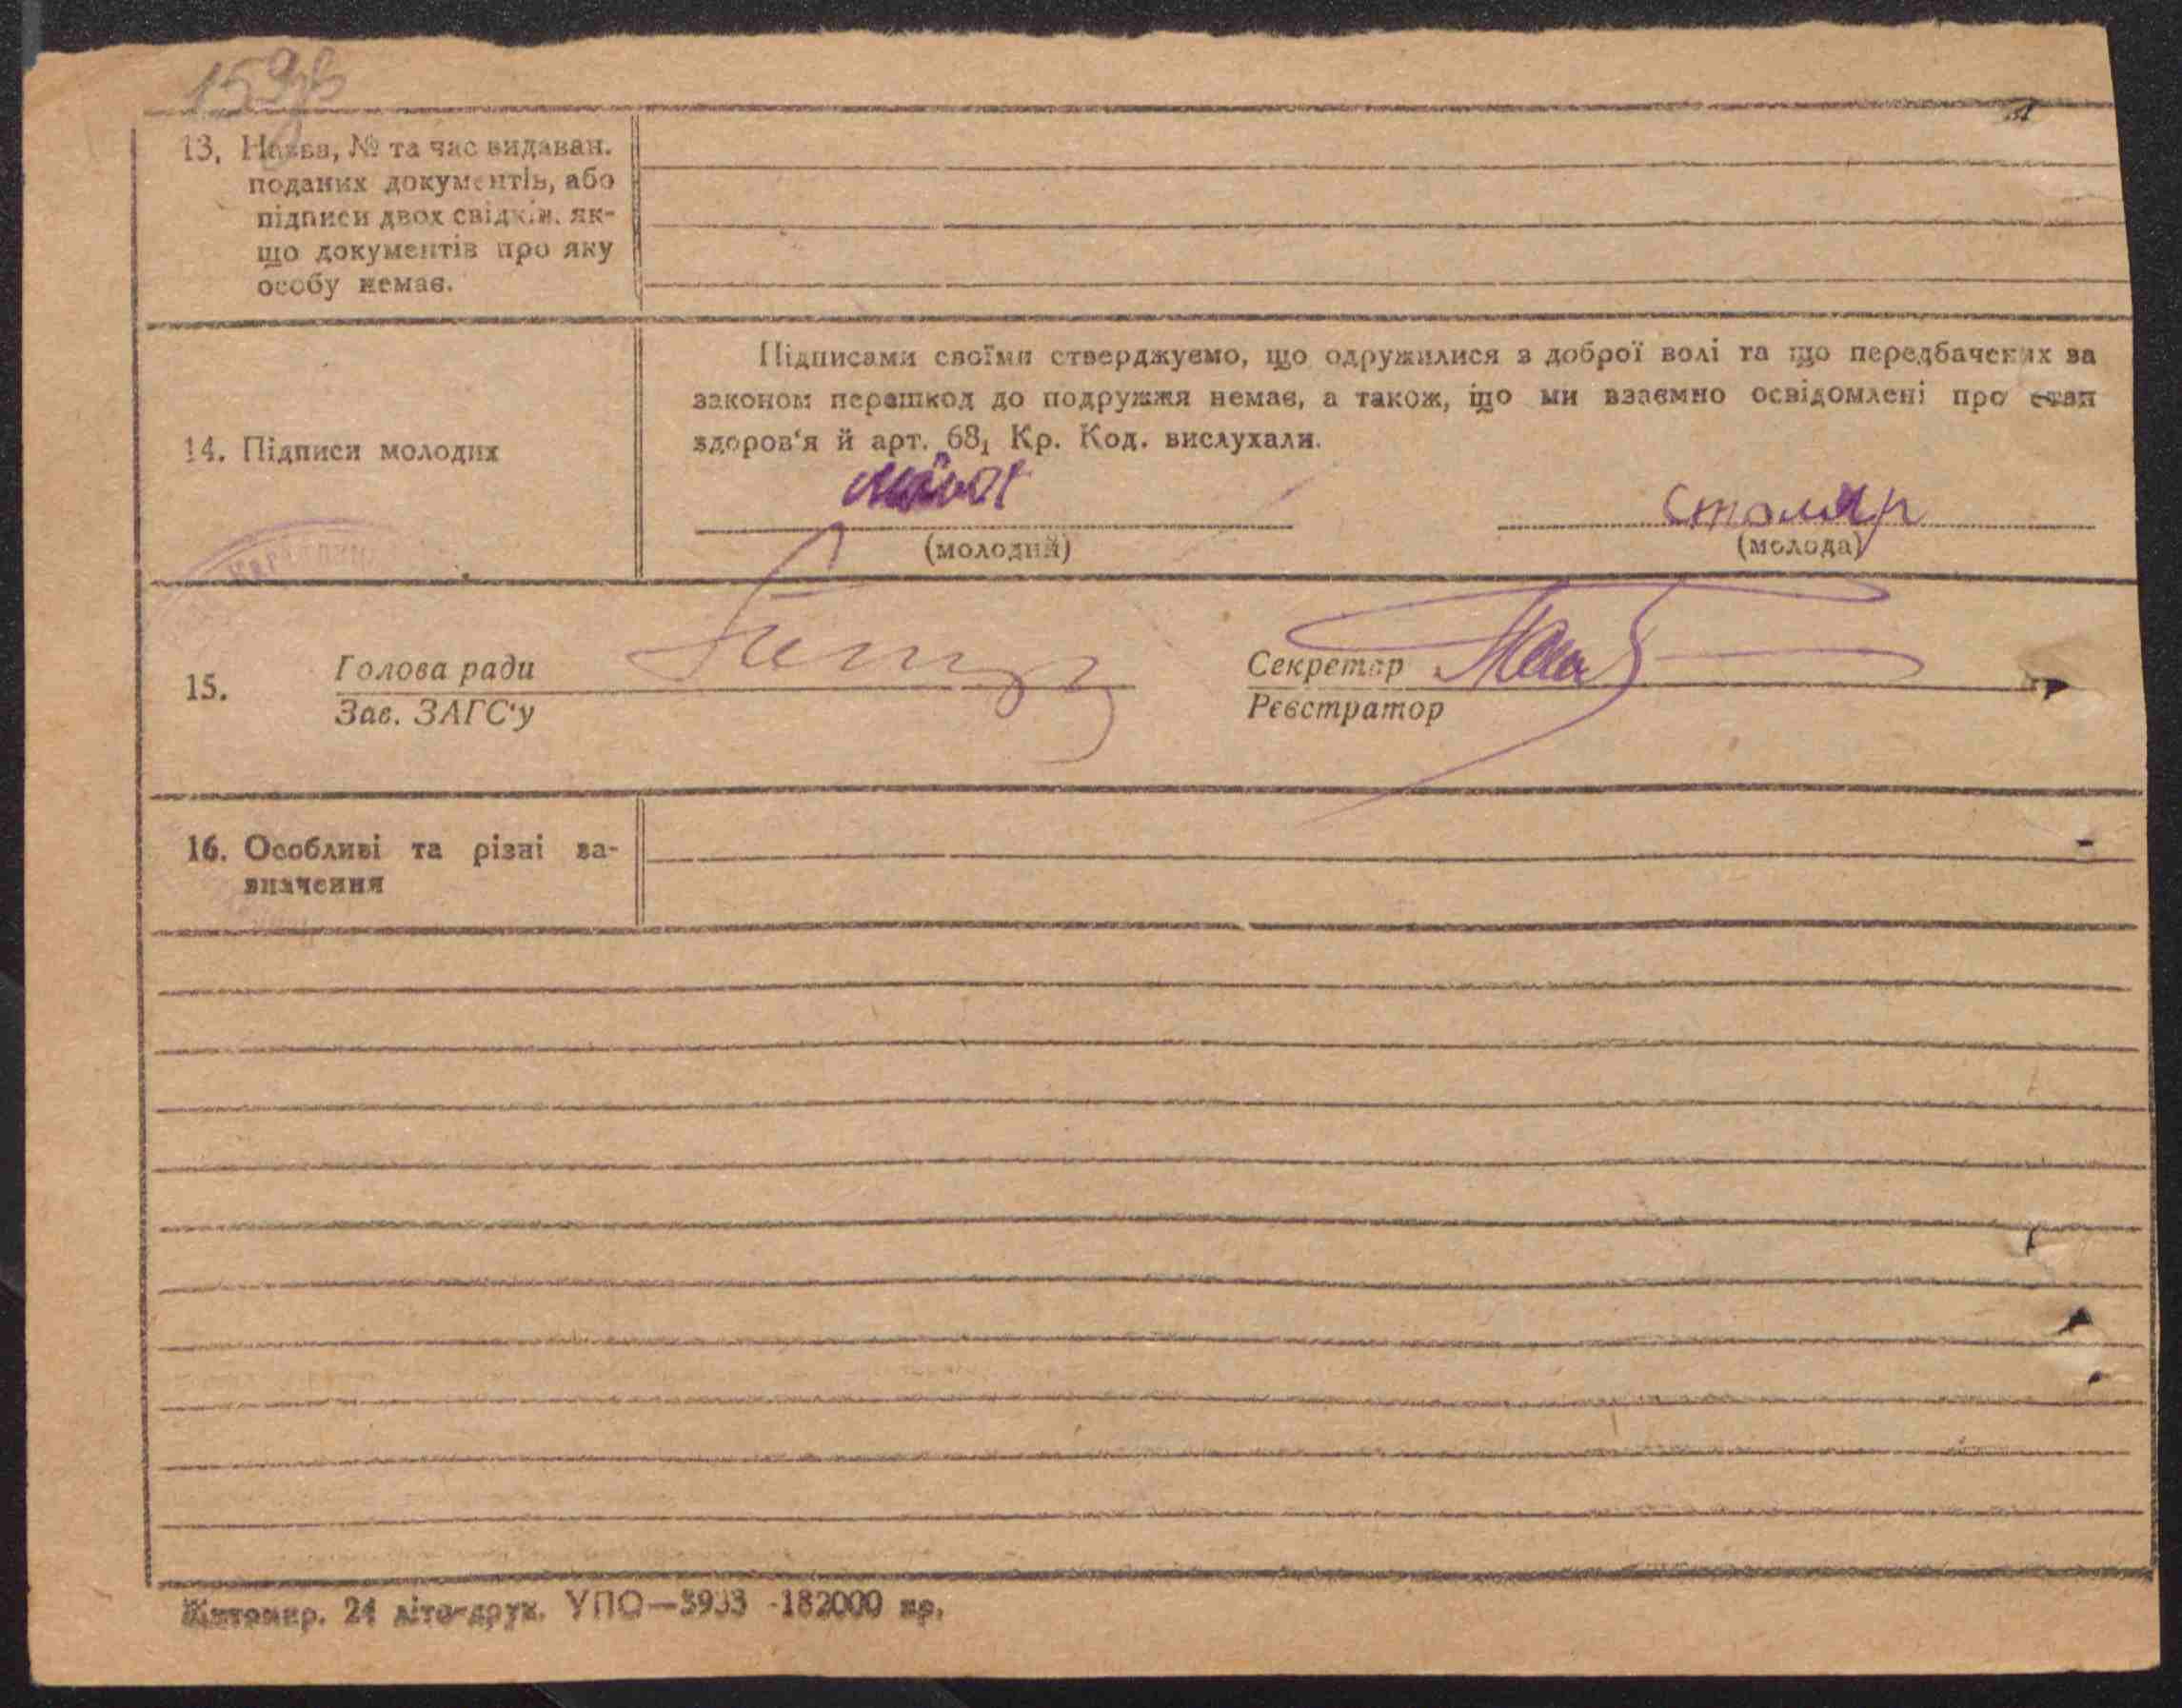 159
13. Назва, № та час видаван.
поданих документів, або
підписи двох свідків, як-
що документів про яку
особу немає.
14. Підписи молодих
Підписами своїми стверджуємо, що одружилися з доброї волі та що передбачених за
законом перешкод до подружжя немає, а також, що ми взаємно освідомлені про стан
здоров'я й арт. 68, Кр. Код. вислухали.
Столяр
(молодий) (молода)
15. Голова ради Секретар
Зав. ЗАГС'у Реєстратор
16. Особливі та різні за-
значення
Житомир. 24 літо-друк. УПО—3933 -182000 пр.